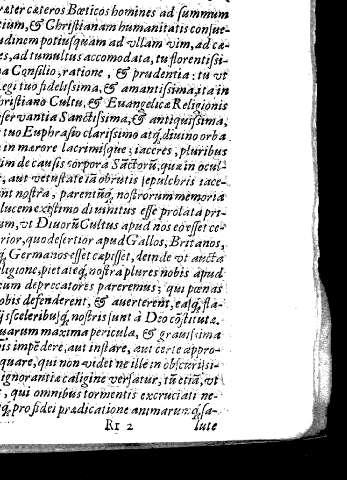 ræter cæteros Bœticos homines ad summum
tium, & Christianam humanitatis consue-
udinem potiusquam ad vllam vim, ad cæ-
es, ad tumultus accomodata, tu florentissi-
na Consilio, ratione, & prudentia: tu vt
Regi tuo fidelissima, & amantissima, ita in
hristiano Cultu, & Euangelicæ Religionis
servantia Sanctissima, & antiquissima,
tuo Euphrasio clarissimo atq́, diuino orba
in mærore lacrimisque; iaceres, pluribus
im de causis corpora Sãctorũ, quæ in ocul-
, aut vetustate iã obrutis sepulchris iace-
nt nostra, parentũq́, nostrorum memoria
lucem existimo diuinitus esse prolata pri-
um, vt Diuorũ Cultus apud nos eò esset ce-
rior, quo desertior apud Gallos, Britanos,
q́, Germanos esset cæpisset, deinde vt aucta
eligione, pietateq́, nostra plures nobis apud
eum deprecatores pareremus; qui pœnas
obis defenderent, & auerterent, easq́, fla-
ijs sceleribusq́, nostris sunt à Deo cõstitutæ.
uarum maxima pericula, & grauissima
is impẽdere, aut instare, aut certe appro-
quare, qui non videt ne ille in obscurissi-
ignorantiæ caligine versatur, tũ etiã, vt
, qui omnibus tormentis excruciati ne-
q́, pro fidei prædicatione animarumq́, sa-
Rr 2 lute